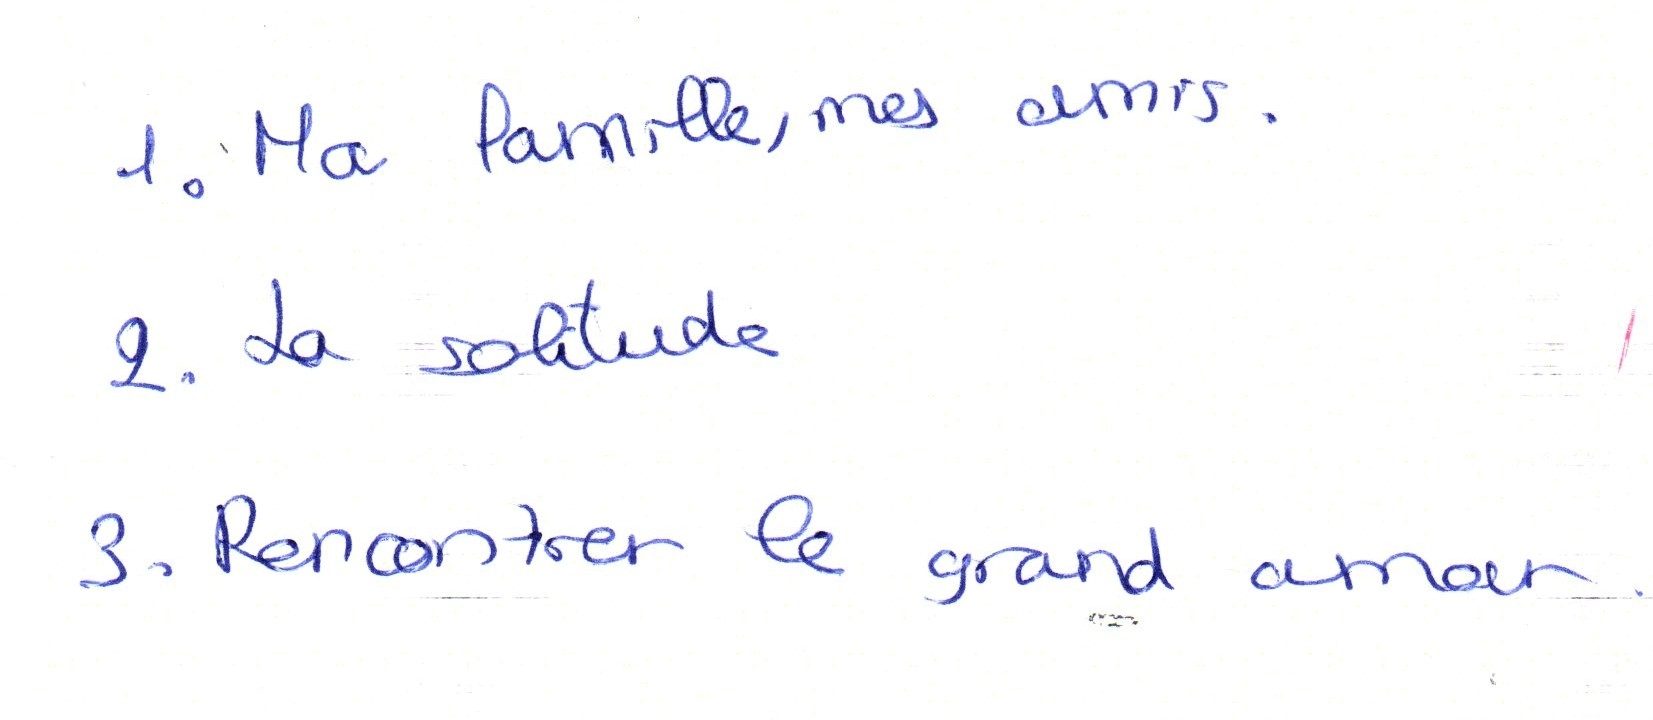 1. Ma famille, mes amis.
2. La solitude
3. Rencontrer le grand amour.